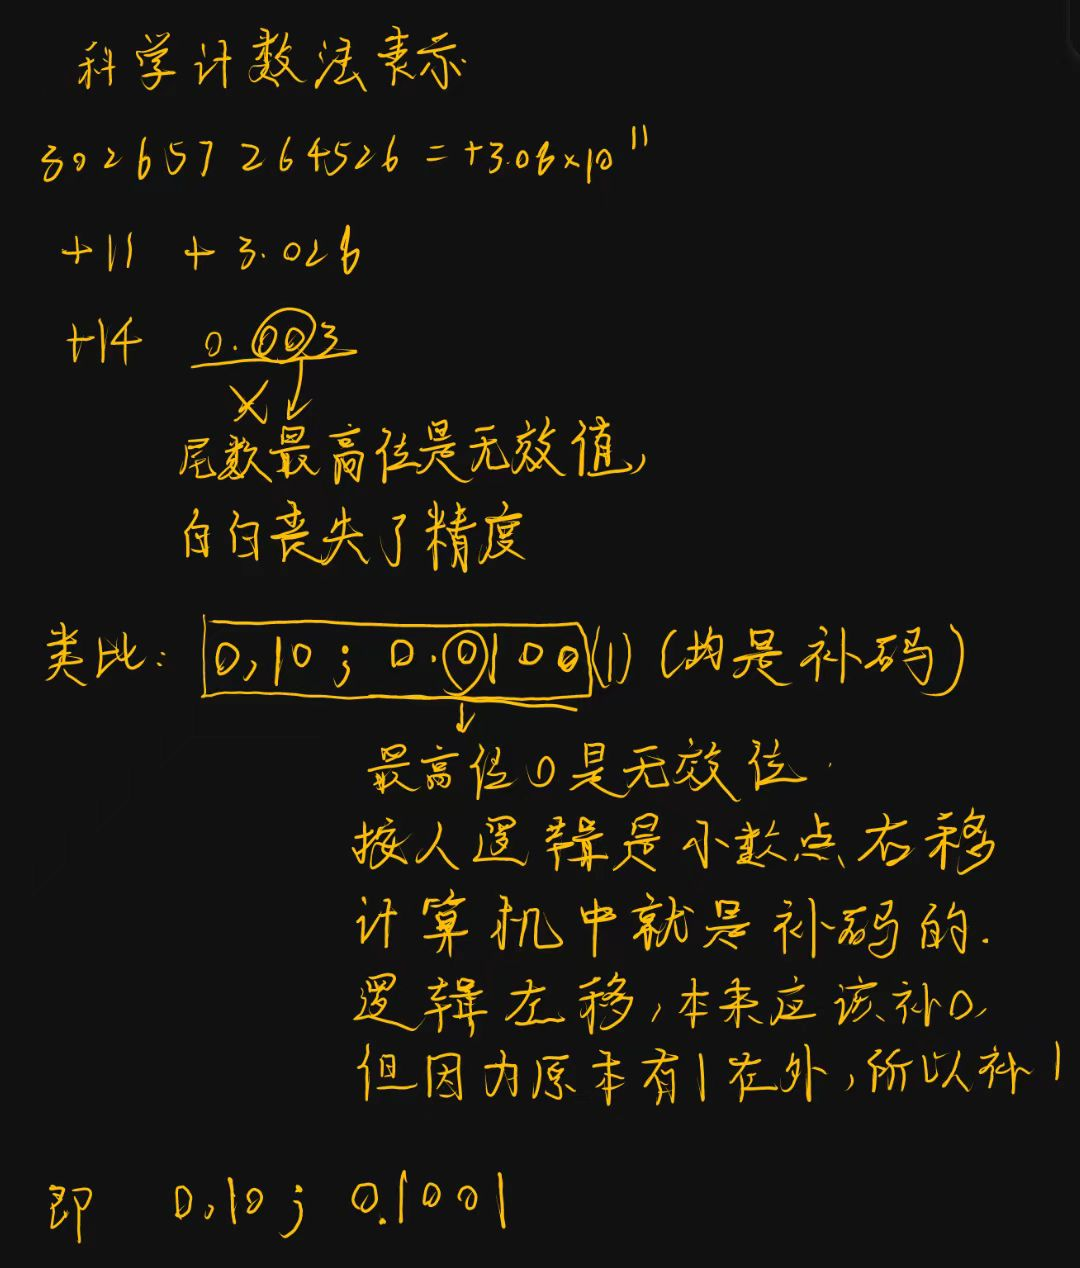 科学计数法表示
302657264526 = +3.06×10¹¹
+11 +3.026
+14 0.003
尾数最高位是无效值,
白白丧失了精度
类比: 0,10; 0.0100(1) (均是补码)
最高位0是无效位.
按人逻辑是小数点右移
计算机中就是补码的.
逻辑左移,本来应该补0,
但因为原本有1在外,所以补1
即 0,10; 0.1001